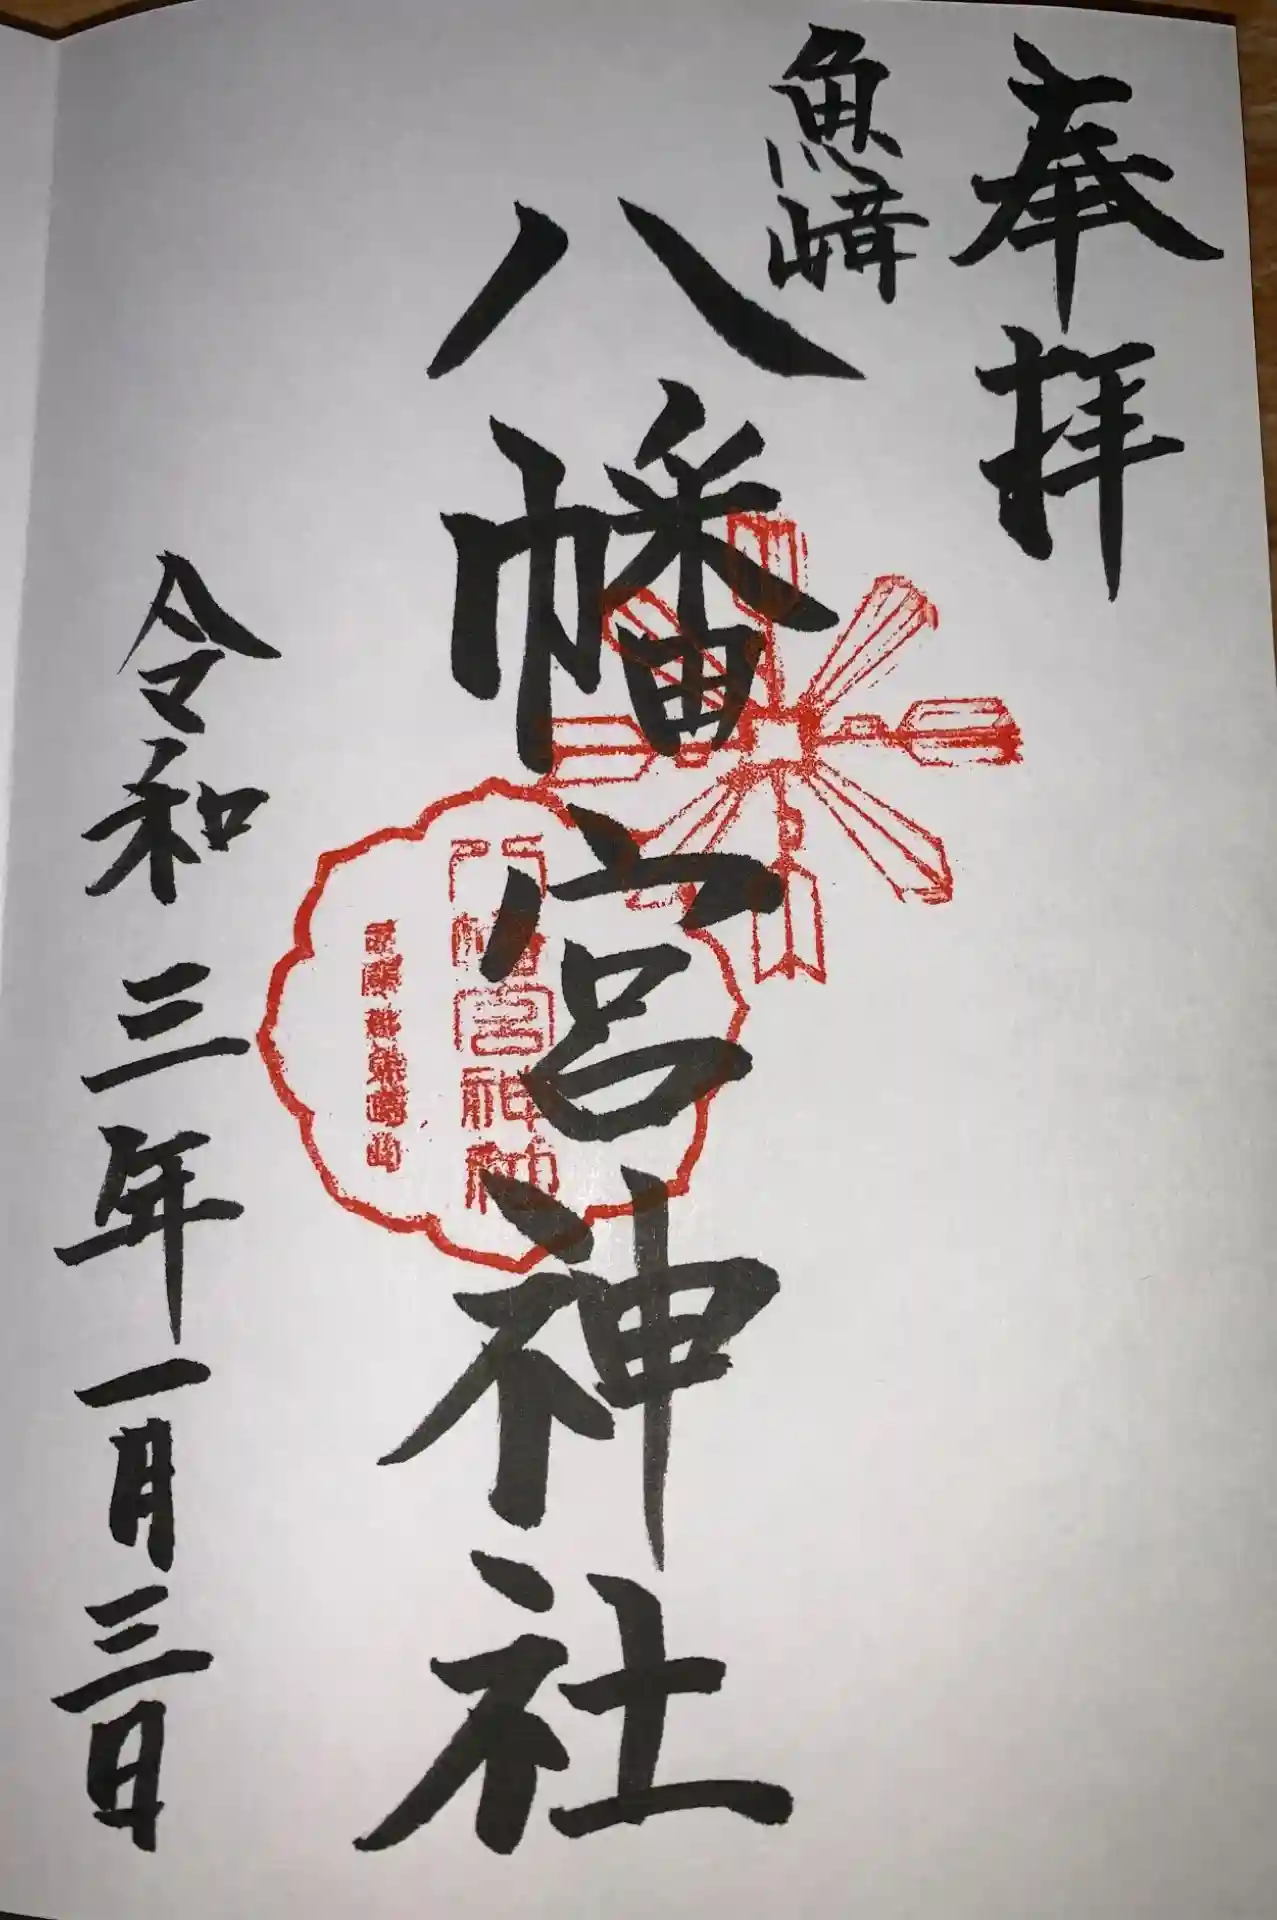 奉拝
魚崎
八幡宮神社
令和三年一月三日
八幡宮神社